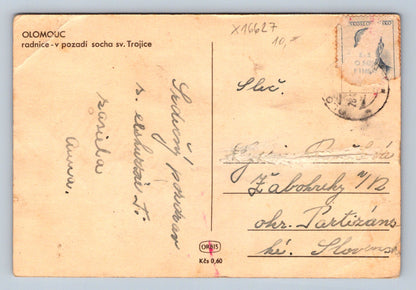 OLOMOUC
radnice - v pozadí socha sv. Trojice
X16627
10,-
Srdečný pozdrav
zasiela
Anna.
Sleč.
Žabokreky n/N
okr. Partizáns
ké. Slovensko
ORBIS
Kčs 0,60